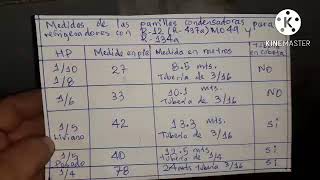 Medidas de las parrillas condensadoras para
refrigeradores con R-12 (R-437a) MO49 y
R-134a
KINEMASTER
HP Medida en pie Medida en metros
1/10 27 8.5 mts. NO
1/8 Tubería de 3/16
1/6 33 10.1 mts. NO
Tubería de 3/16
1/5 42 13.3 mts. Si
Liviano Tubería de 3/16
1/5 40 12.5 mts. Si
Pesado Tubería de 1/4
1/4 78 24 mts Tubería 3/16 Si